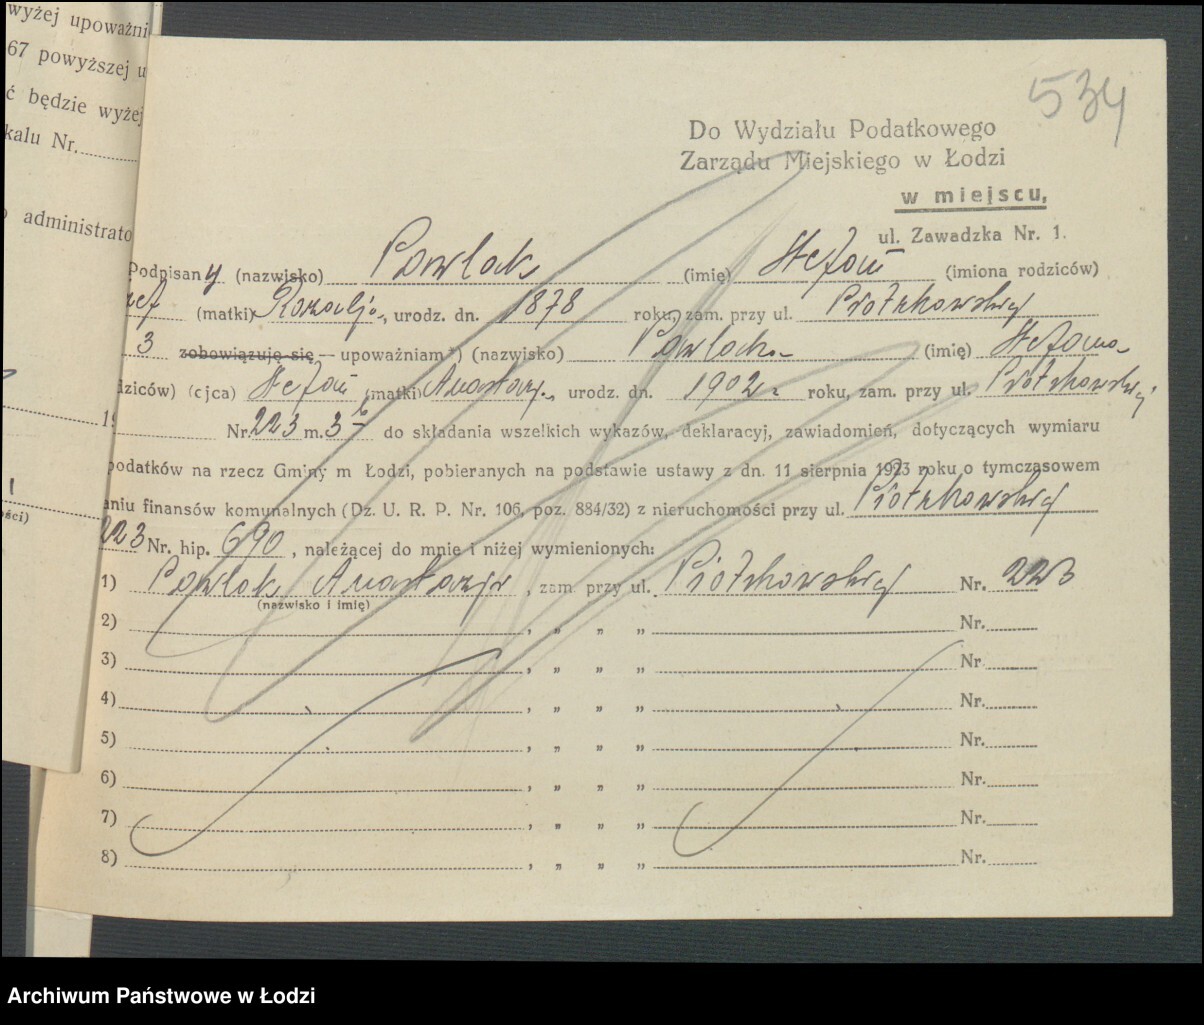 wyżej upoważni
67 powyższej u
ć będzie wyżej
kalu Nr.
administrato
19
1
ości)
534
Do Wydziału Podatkowego
Zarządu Miejskiego w Łodzi
w miejscu,
ul. Zawadzka Nr. 1.
Podpisany (nazwisko) Pawlak (imię) Stefan (imiona rodziców)
(matki) Rozalja, urodz. dn. 1878 roku, zam. przy ul. Piotrkowskiej
3 zobowiązuję się — upoważniam*) (nazwisko) Pawlacka (imię) Stefana
dziców) (cjca) Stefan (matki) Anastazja urodz. dn. 1902 r roku, zam. przy ul. Piotrkowskiej
Nr. 223 m. 36 do składania wszelkich wykazów, deklaracyj, zawiadomień, dotyczących wymiaru
podatków na rzecz Gminy m Łodzi, pobieranych na podstawie ustawy z dn. 11 sierpnia 1923 roku o tymczasowem
aniu finansów komunalnych (Dz. U. R. P. Nr. 106, poz. 884/32) z nieruchomości przy ul. Piotrkowskiej
223 Nr. hip. 690, należącej do mnie i niżej wymienionych:
1) Pawlak Anastazja, zam. przy ul. Piotrkowskiej Nr. 223
(nazwisko i imię)
2) , „ „ „ Nr.
3) , „ „ „ Nr.
4) , „ „ „ Nr.
5) , „ „ „ Nr.
6) , „ „ „ Nr.
7) , „ „ „ Nr.
8) , „ „ „ Nr.
Archiwum Państwowe w Łodzi